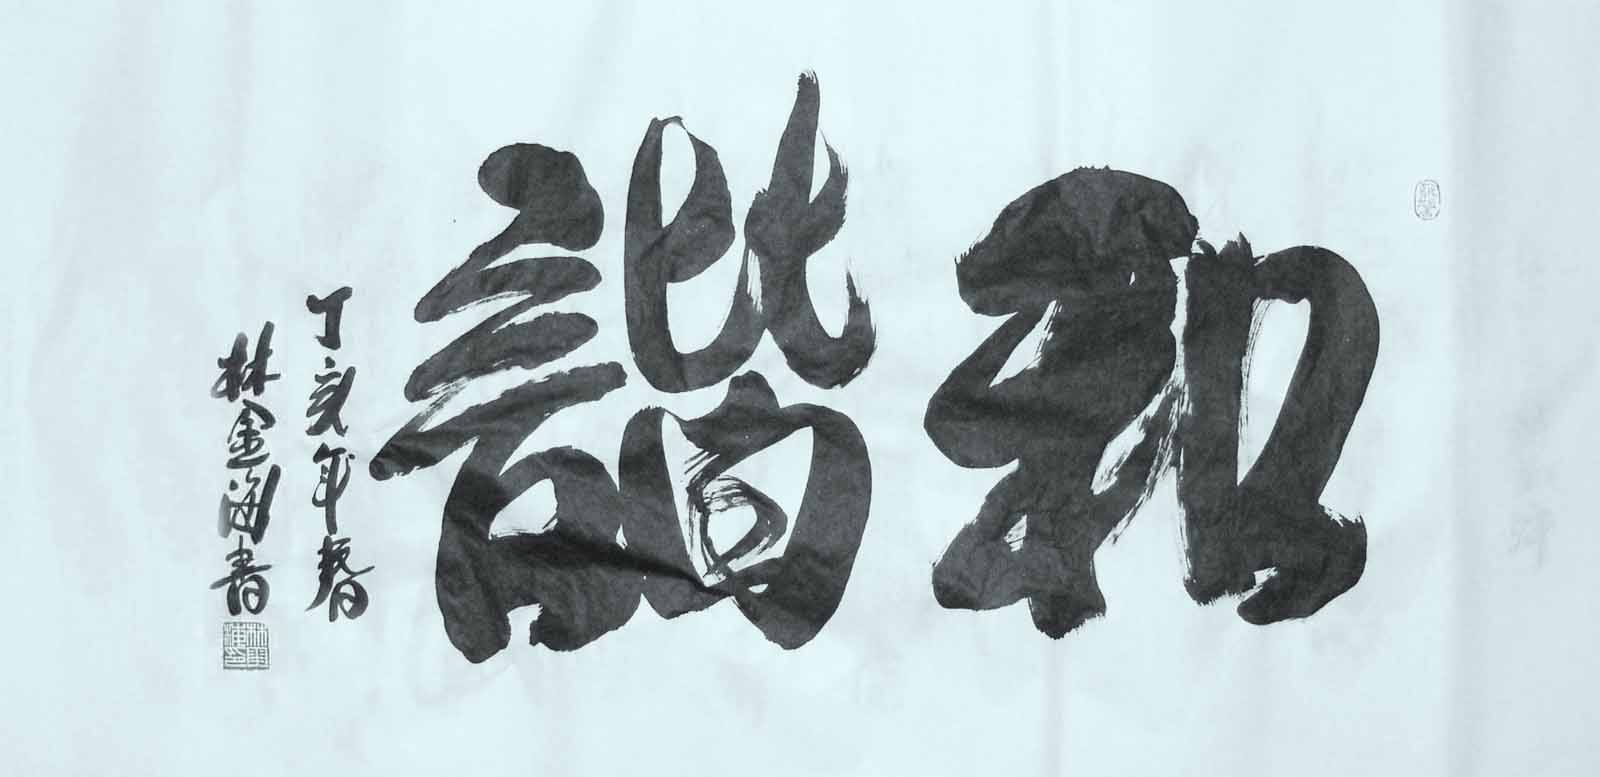 和諧
丁亥年春
林金海書